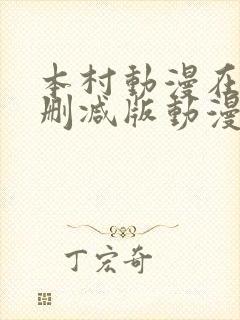 本村動漫在
删减版動漫
丁宏奇